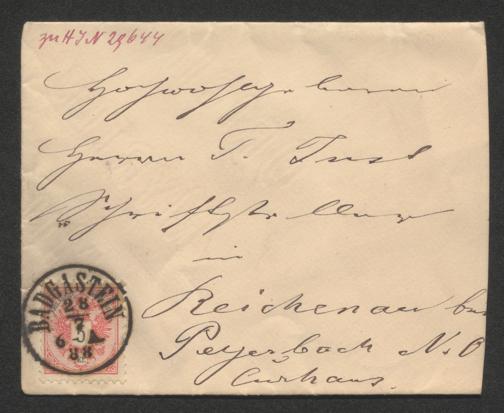 zu H.I.N 29644
Hochwohlgeboren
Herrn T. Just
Schriftsteller
in
Reichenau bei
Peyerbach N. Ö
Curhaus.
BADGASTEIN
28
7
6 A
88
5